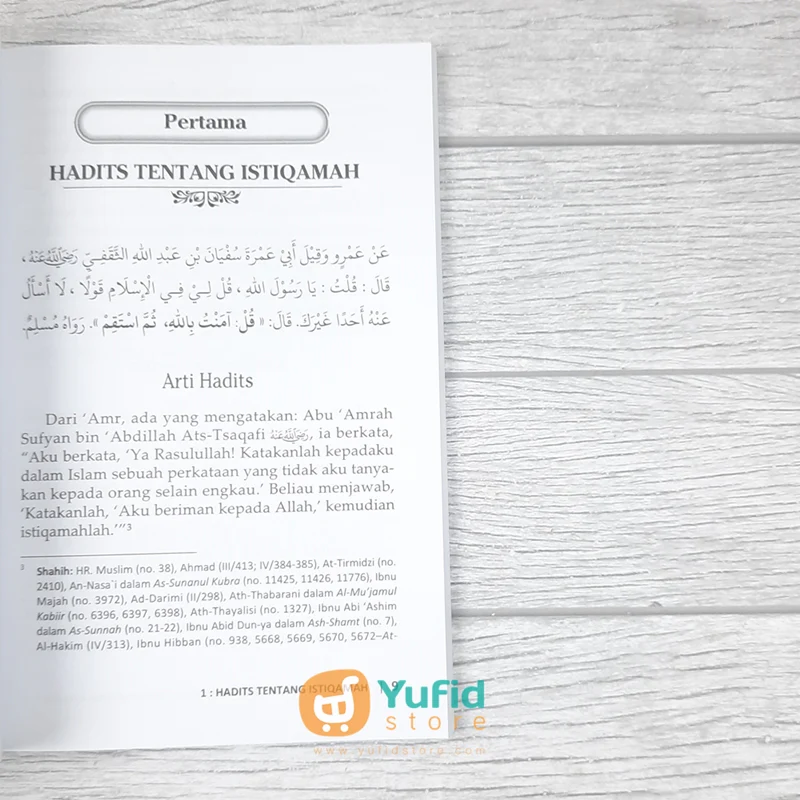 Pertama
HADITS TENTANG ISTIQAMAH
عَنْ عَمْرٍو وَقِيْلَ أَبِيْ عَمْرَةَ سُفْيَانَ بْنِ عَبْدِ اللهِ الثَّقَفِيِّ رَضِيَ اللَّهُ عَنْهُ،
قَالَ : قُلْتُ : يَا رَسُوْلَ اللهِ ، قُلْ لِيْ فِي الْإِسْلَامِ قَوْلًا ، لَا أَسْأَلُ
عَنْهُ أَحَدًا غَيْرَكَ. قَالَ: « قُلْ: آمَنْتُ بِاللهِ، ثُمَّ اسْتَقِمْ ». رَوَاهُ مُسْلِمٌ.
Arti Hadits
Dari ‘Amr, ada yang mengatakan: Abu ‘Amrah
Sufyan bin ‘Abdillah Ats-Tsaqafi رَضِيَ اللَّهُ عَنْهُ, ia berkata,
“Aku berkata, ‘Ya Rasulullah! Katakanlah kepadaku
dalam Islam sebuah perkataan yang tidak aku tanya-
kan kepada orang selain engkau.’ Beliau menjawab,
‘Katakanlah, ‘Aku beriman kepada Allah,’ kemudian
istiqamahlah.’”³
³ Shahih: HR. Muslim (no. 38), Ahmad (III/413; IV/384-385), At-Tirmidzi (no.
2410), An-Nasa`i dalam As-Sunanul Kubro (no. 11425, 11426, 11776), Ibnu
Majah (no. 3972), Ad-Darimi (II/298), Ath-Thabarani dalam Al-Mu’jamul
Kabiir (no. 6396, 6397, 6398), Ath-Thayalisi (no. 1327), Ibnu Abi ‘Ashim
dalam As-Sunnah (no. 21-22), Ibnu Abid Dun-ya dalam Ash-Shamt (no. 7),
Al-Hakim (IV/313), Ibnu Hibban (no. 938, 5668, 5669, 5670, 5672–At-
1 : HADITS TENTANG ISTIQAMAH 9
Yufid
store
www.yufidstore.com